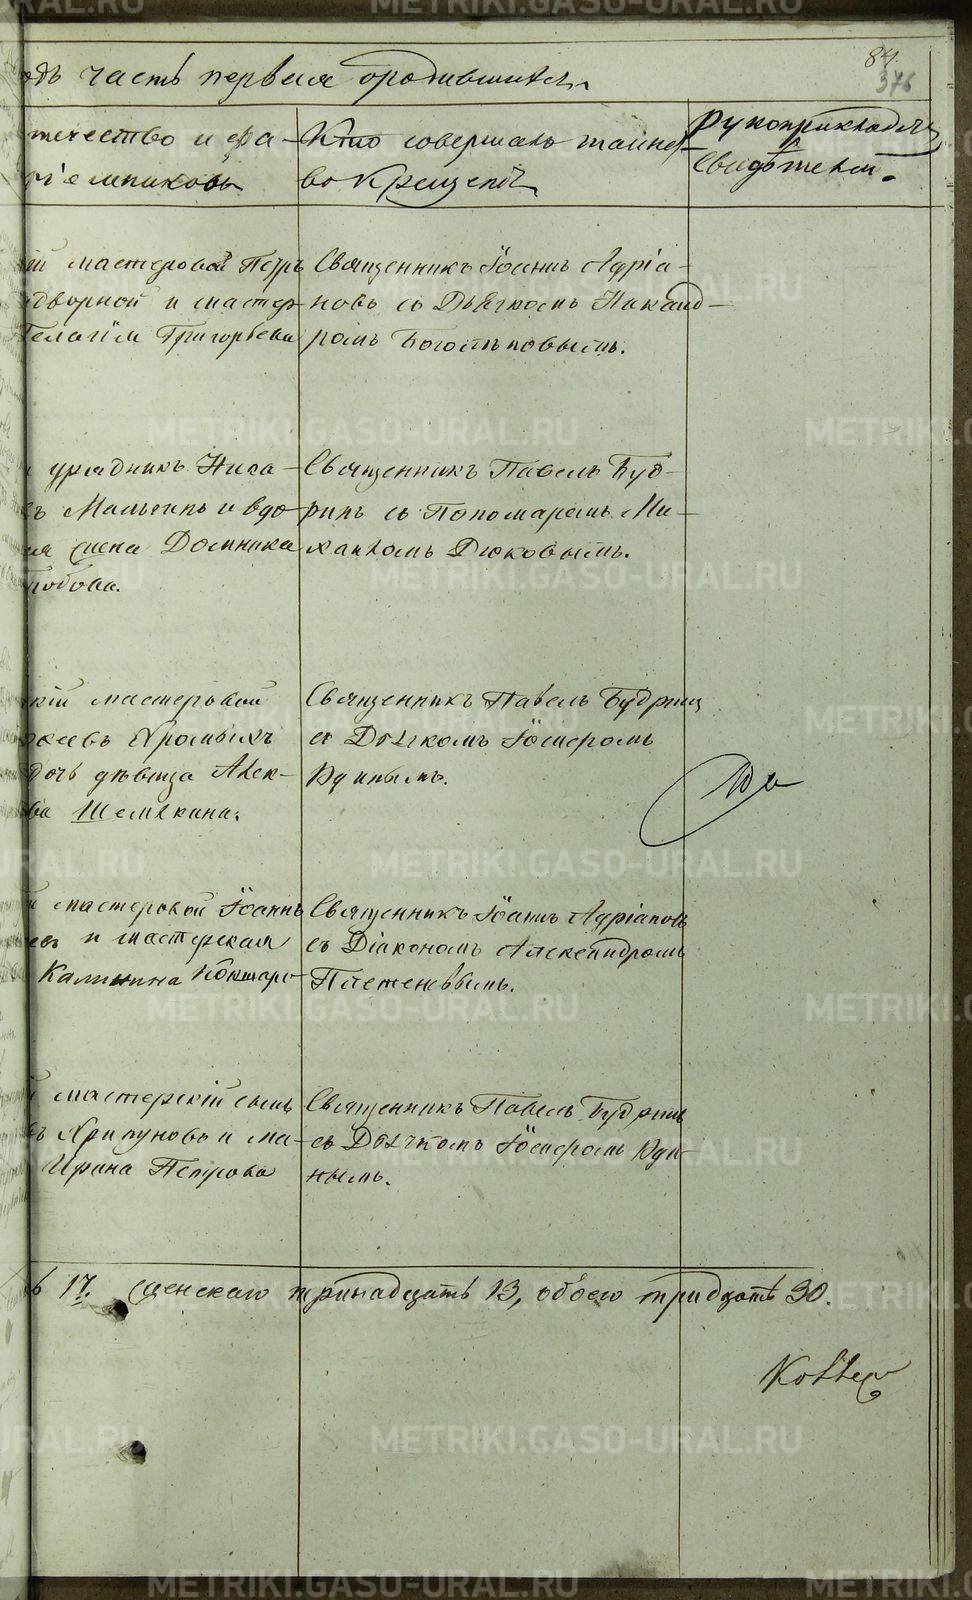 84.
376
одъ часть первая о родившихся
течество и фа-
ріемниковъ
Кто совершалъ таинс-
во Крещенія
Рукоприкладст
Свидѣтелей.
ій мастеровой Петръ
дворной и мастер-
Пелагія Григорьева
Священникъ Іоаннъ Адріа-
новъ съ Дьячкомъ Никанд-
ромъ Боголѣповымъ.
урядникъ Исаа-
ъ Мальгинъ и вдо-
ая жена Домника
това.
Священникъ Павелъ Буд-
ринъ съ Пономаремъ Ми-
хаиломъ Дюковымъ.
кій мастеровой
ѣевъ Хромыхъ
дочь дѣвица Алек-
ва Шемякина.
Священникъ Павелъ Будринъ
съ Дьячкомъ Іосифомъ
й мастеровой Іоаннъ
въ и мастерская
Калинина Кокшаро-
Священникъ Іоаннъ Адріановъ
съ Діакономъ Александромъ
Плетеневымъ.
й мастерскій сынъ
ъ Хрипуновъ и ма-
Ирина Петрова
Священникъ Павелъ Будринъ
съ Дьячкомъ Іосифомъ
нымъ.
ъ 17. женскаго тринадцать 13, обоего тридцать 30.
METRIKI.GASO-URAL.RU